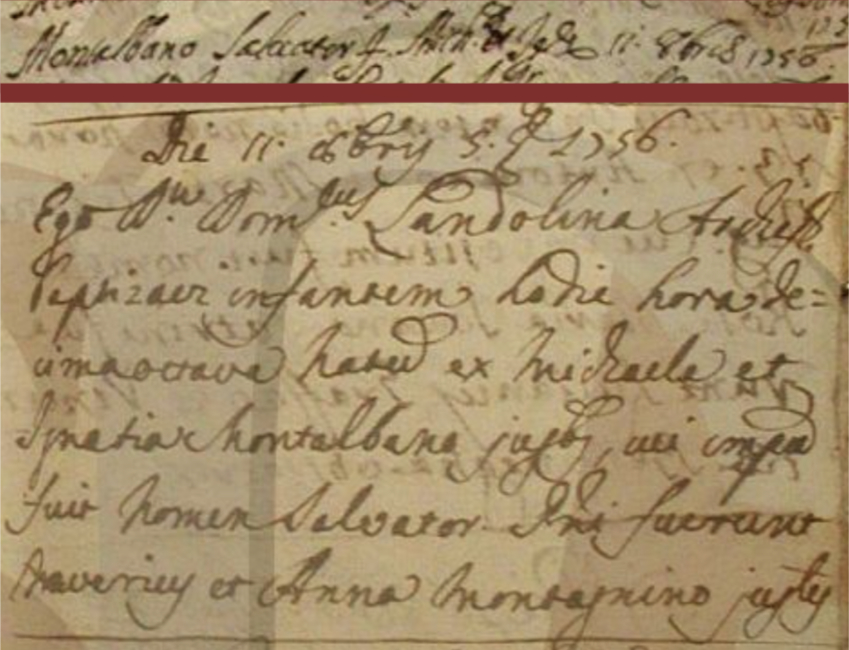 Montalbano Salvator f. Mich: et 11: 8bris 1756.
Die 11: 8bris 5. I. 1756.
Ego D.r Dom.cus Landolina Archip.r
baptizavi infantem hodie hora de=
cimaoctava natum ex Michaele et
Ignatia Montalbano jugb, cui impm
fuit nomen Salvator Pni fuerunt
Xaverius et Anna Montagnino jugles